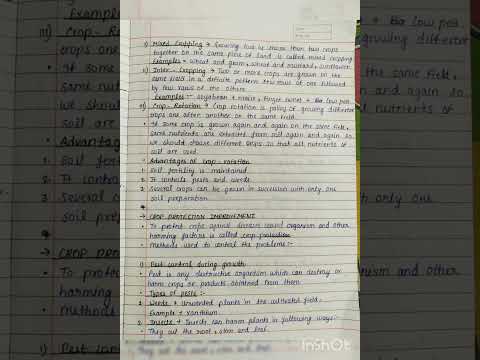 i) Mixed Cropping → Growing two or more than two crops
together on the same piece of land is called mixed cropping
Examples → wheat and gram, wheat and mustard, sunflower
ii) Inter-Cropping → Two or more crops are grown on the
same field in a definite pattern. Few rows of one followed
by few rows of the others.
Examples :- soyabean + maize, finger millet +
iii) Crop-Rotation → Crop rotation is policy of growing different
crops one after another on the same field.
• If same crop is grown again and again on the same field,
same nutrients are extracted from soil again and again so
we should choose different crops so that all nutrients of
soil are used.
• Advantages of crop-rotation
1. Soil fertility is maintained.
2. It controls pests and weeds.
3. Several crops can be grown in succession with only one
soil preparation.
→ CROP PROTECTION IMPROVEMENT
• To protect crops against disease causing organism and other
harming factors is called crop protection
• Methods used to control the problems:-
i) Pest control during growth
• Pest is any destructive organism which can destroy or
harm crops or products obtained from them.
• Types of pests :-
1. Weeds → Unwanted plants in the cultivated field.
Example → xanthium
2. Insects → Insects can harm plants in following ways:-
• They cut the root, stem and leaf.
InShOt